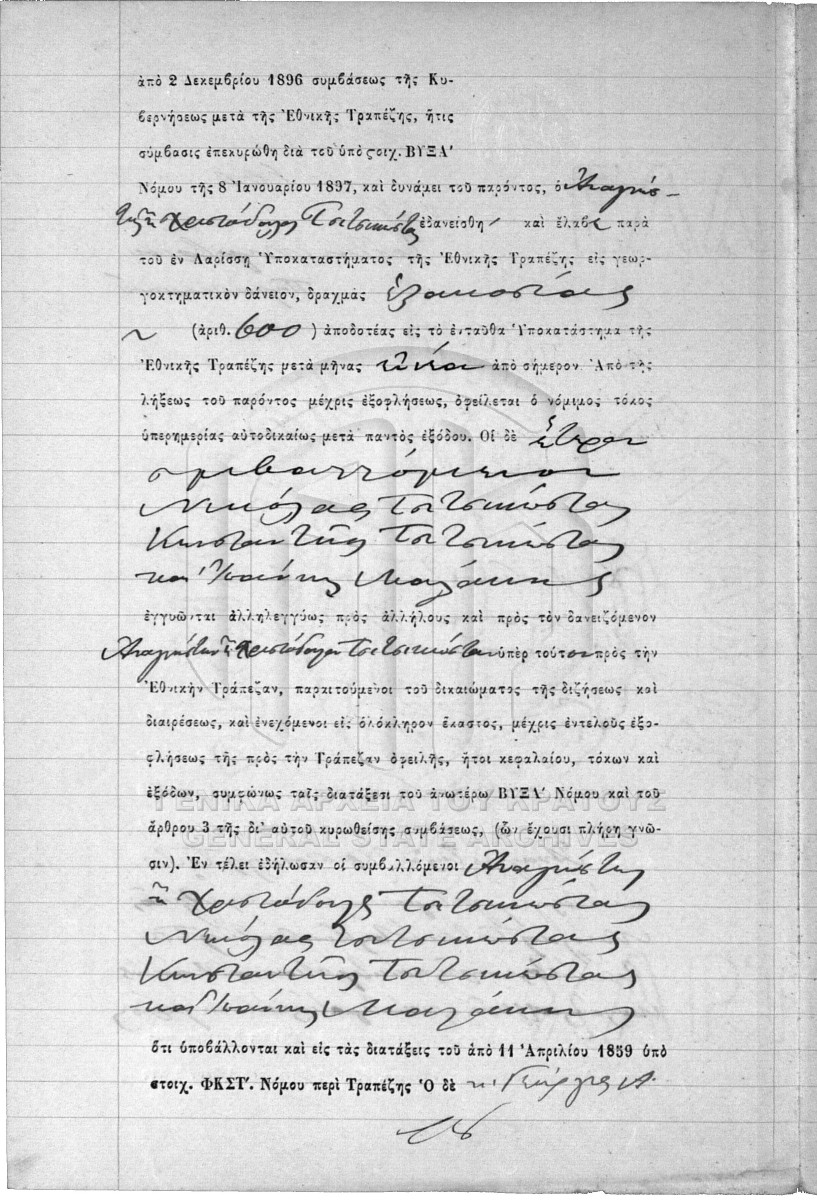 ἀπὸ 2 Δεκεμβρίου 1896 συμβάσεως τῆς Κυ-
βερνήσεως μετὰ τῆς Ἐθνικῆς Τραπέζης, ἥτις
σύμβασις ἐπεκυρώθη διὰ τοῦ ὑπὸ στοιχ. ΒΥΞΑ′
Νόμου τῆς 8 Ἰανουαρίου 1897, καὶ δυνάμει τοῦ παρόντος, ὁ Ἀναγνώσ-
της ἢ Χριστόδουλος Τσιτσικώστας ἐδανείσθη καὶ ἔλαβε παρὰ
τοῦ ἐν Λαρίσσῃ Ὑποκαταστήματος τῆς Ἐθνικῆς Τραπέζης εἰς γεωρ-
γοκτηματικὸν δάνειον, δραχμὰς ἑξακοσίας
(ἀριθ. 600) ἀποδοτέας εἰς τὸ ἐνταῦθα Ὑποκατάστημα τῆς
Ἐθνικῆς Τραπέζης μετὰ μῆνας ἐννέα ἀπὸ σήμερον. Ἀπὸ τῆς
λήξεως τοῦ παρόντος μέχρις ἐξοφλήσεως, ὀφείλεται ὁ νόμιμος τόκος
ὑπερημερίας αὐτοδικαίως μετὰ παντὸς ἐξόδου. Οἱ δὲ ἕτεροι
συμβαλλόμενοι
Νικόλαος Τσιτσικώστας
Κωσταντῆς Τσιτσικώστας
και Ἰωάννης Μαλάκης
ἐγγυῶνται ἀλληλεγγύως πρὸς ἀλλήλους καὶ πρὸς τὸν δανειζόμενον
Ἀναγνώστην ἢ Χριστόδουλον Τσιτσικώσταν ὑπὲρ τούτου πρὸς τὴν
Ἐθνικὴν Τράπεζαν, παραιτούμενοι τοῦ δικαιώματος τῆς διζήσεως καὶ
διαιρέσεως, καὶ ἐνεχόμενοι εἰς ὁλόκληρον ἕκαστος, μέχρις ἐντελοῦς ἐξο-
φλήσεως τῆς πρὸς τὴν Τράπεζαν ὀφειλῆς, ἤτοι κεφαλαίου, τόκων καὶ
ἐξόδων, συμφώνως ταῖς διατάξεσι τοῦ ἀνωτέρω ΒΥΞΑ′ Νόμου καὶ τοῦ
ΓΕΝΙΚΑ ΑΡΧΕΙΑ ΤΟΥ ΚΡΑΤΟΥΣ
ἄρθρου 3 τῆς δι' αὐτοῦ κυρωθείσης συμβάσεως, (ὧν ἔχουσι πλήρη γνῶ-
GENERAL STATE ARCHIVES
σιν). Ἐν τέλει ἐδήλωσαν οἱ συμβαλλόμενοι Ἀναγνώστης
ἢ Χριστόδουλος Τσιτσικώστας
Νικόλαος Τσιτσικώστας
Κωσταντῆς Τσιτσικώστας
και Ἰωάννης Μαλάκης
ὅτι ὑποβάλλονται καὶ εἰς τὰς διατάξεις τοῦ ἀπὸ 11 Ἀπριλίου 1859 ὑπὸ
στοιχ. ΦΚΣΤ′. Νόμου περὶ Τραπέζης Ὁ δὲ κ. Γεώργιος Α.